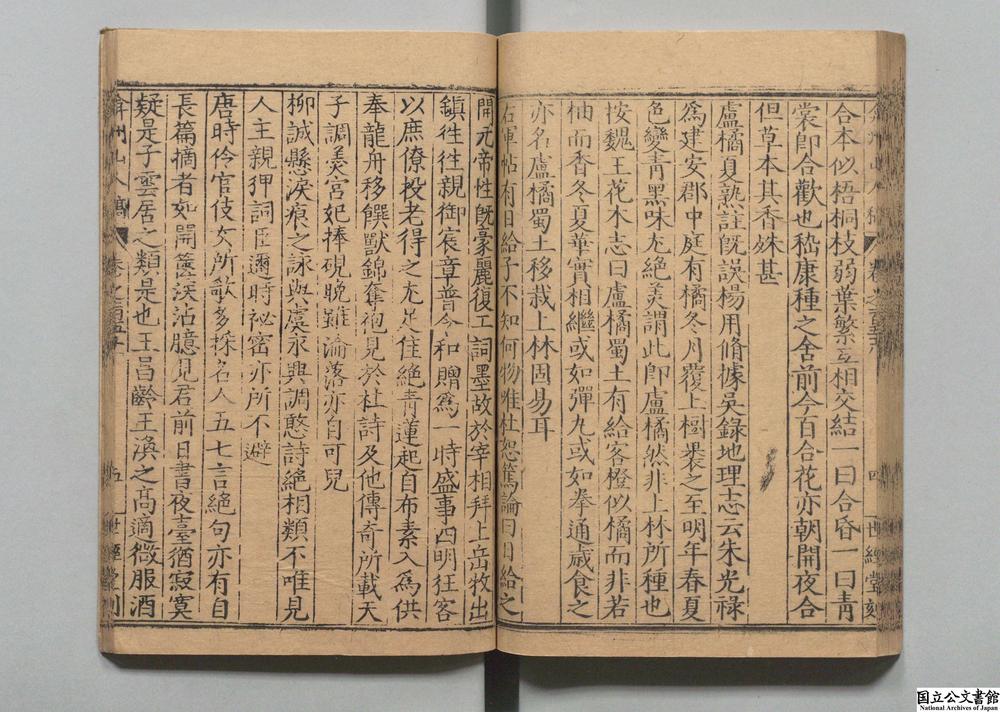 合本似梧桐枝弱葉繁互相交結一曰合昏一曰青
裳卽合歡也嵇康種之舍前今百合花亦朝開夜合
但草本其香姝甚
盧橘夏熟註旣誤楊用脩據吳錄地理志云朱光祿
爲建安郡中庭有橘冬月覆上樹裹之至明年春夏
色變青黑味尤絶美謂此卽盧橘然非上林所種也
按魏王花木志曰盧橘蜀土有給客橙似橘而非若
柚而香冬夏華實相繼或如彈丸或如拳通歲食之
亦名盧橘蜀土移栽上林固易耳
右軍帖有日給子不知何物唯杜恕篤論曰日給之
四
世經堂刻
開元帝性旣豪麗復工詞墨故於宰相拜上岳牧出
鎭徃徃親御宸章普令和贈爲一時盛事四明狂客
以庶僚投老得之尤足佳絶青蓮起自布素入爲供
奉龍舟移饌獸錦奪袍見於杜詩及他傳奇所載天
子調羹宮妃捧硯晚雖淪落亦自可兒
柳誠懸淚痕之詠與虞永興調憨詩絶相類不唯見
人主親狎詞臣邇時祕密亦所不避
唐時伶官伎女所歌多採名人五七言絶句亦有自
長篇摘者如開篋淚沾臆見君前日書夜臺猶寂寞
疑是子雲居之類是也王昌齡王渙之高適微服酒
弇州山人稿
五
世經堂刻
国立公文書館
National Archives of Japan